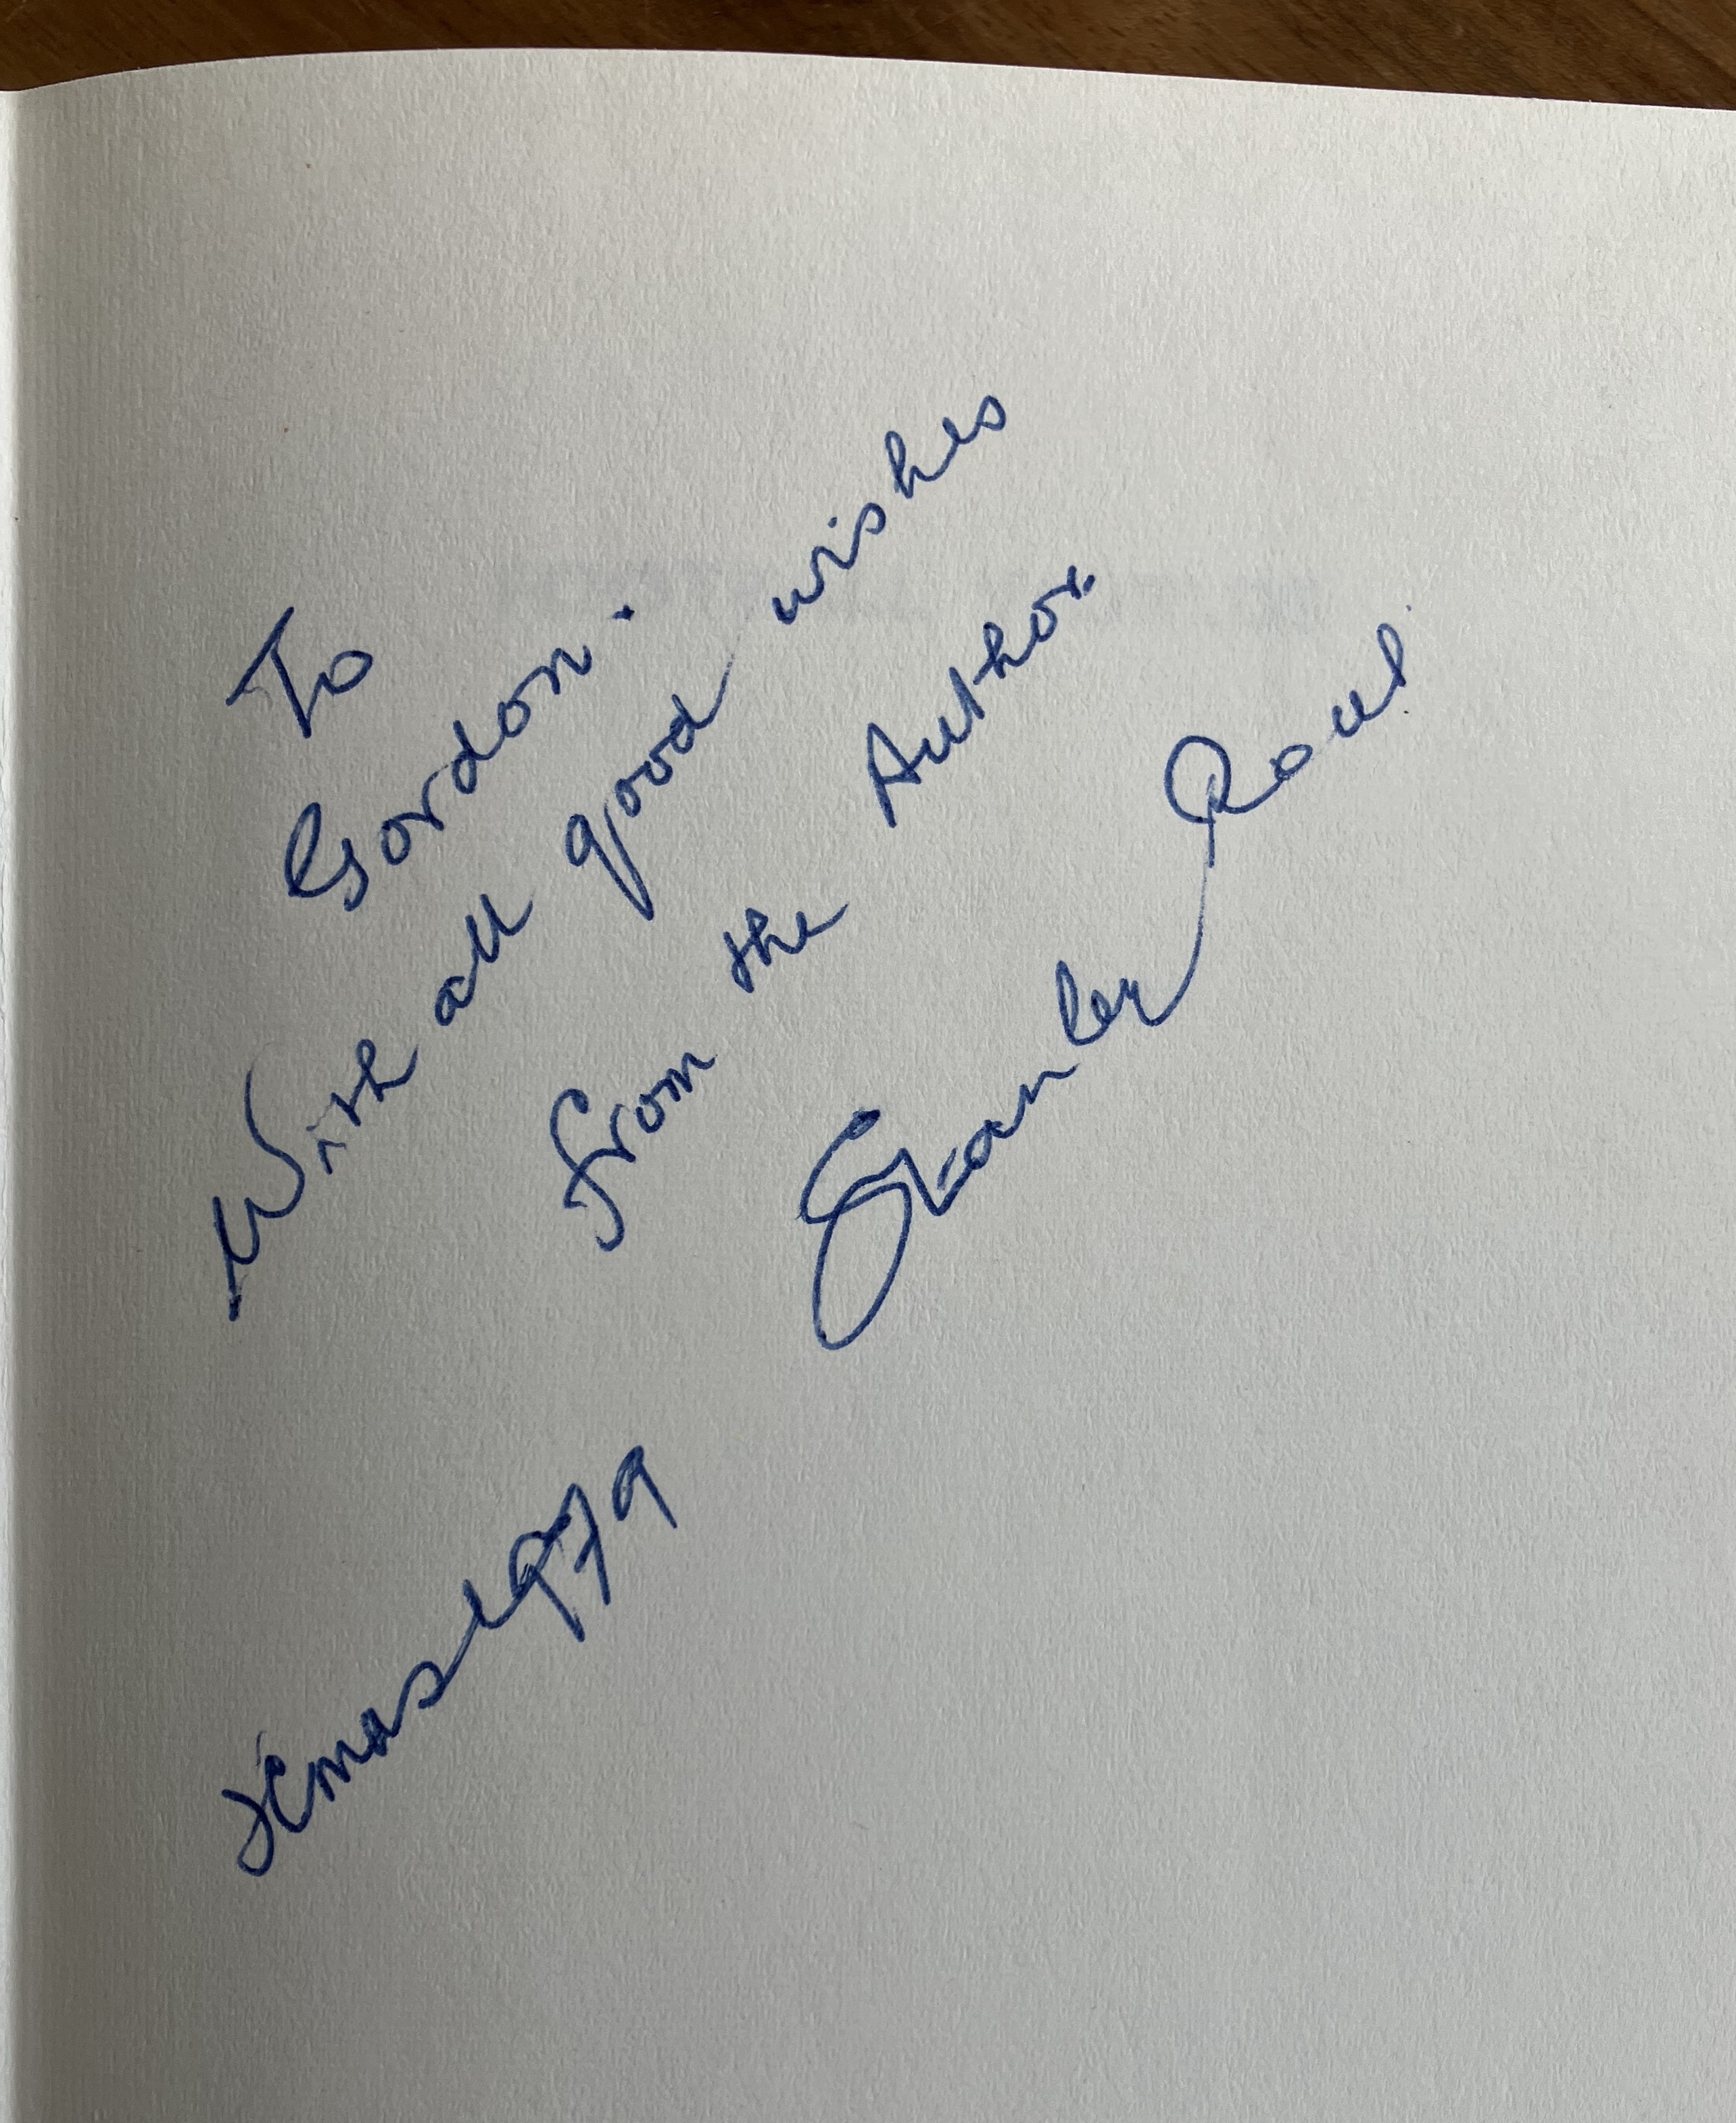 To
Gordon.
With all good wishes
from the Author.
Stanley Paul.
Xmas 1979